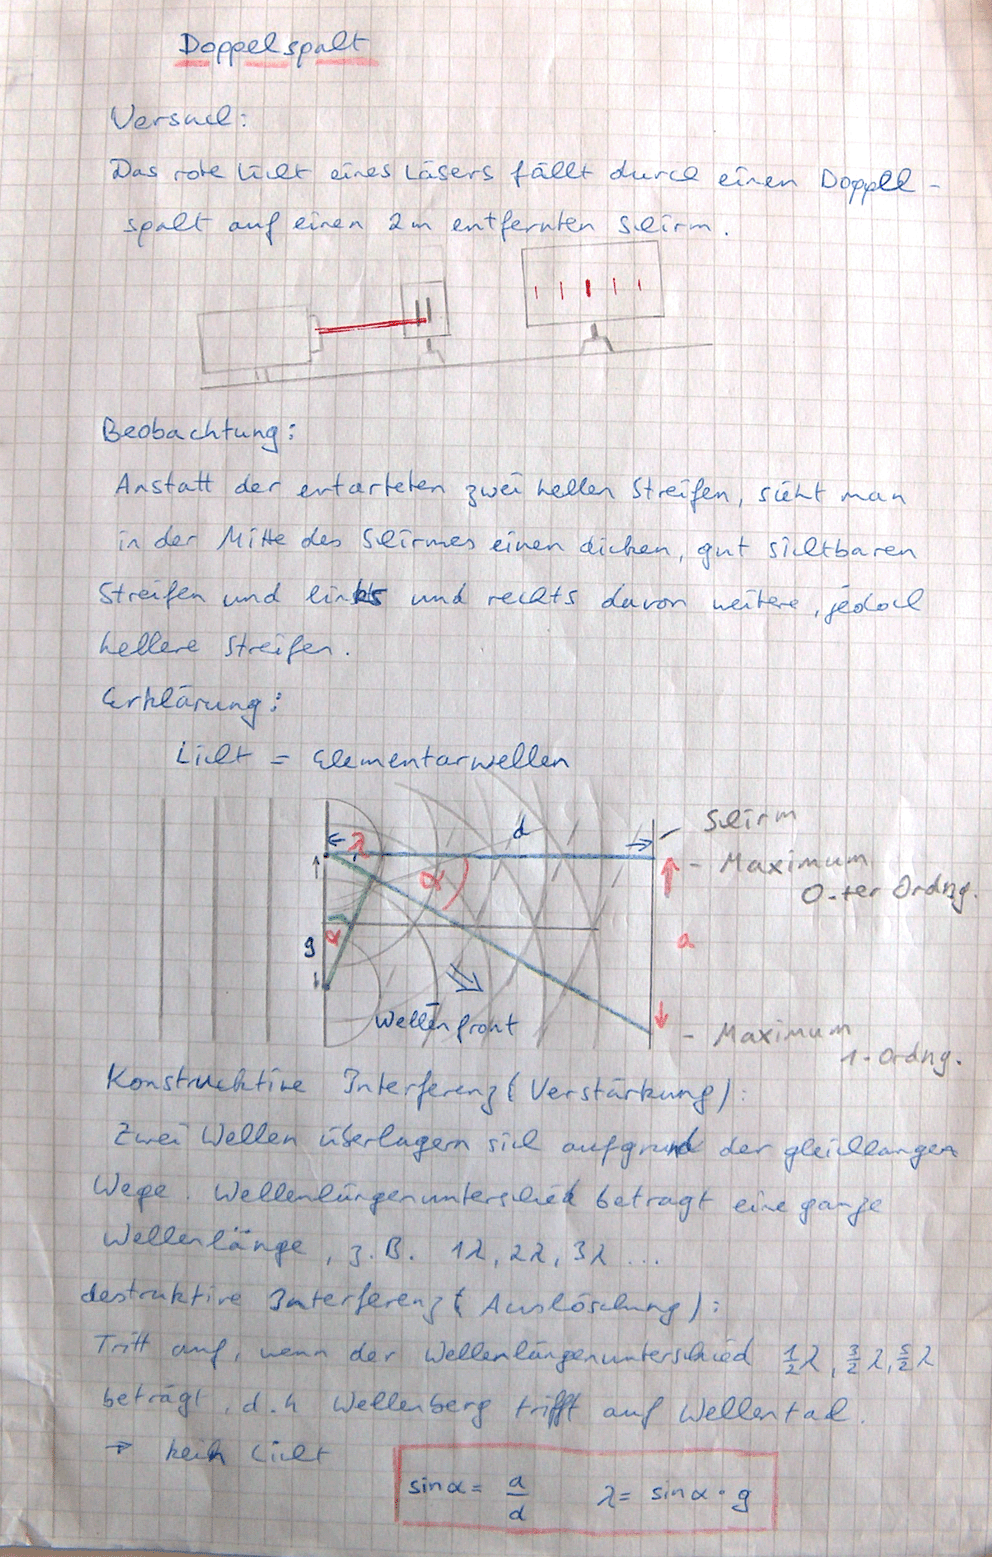 Doppelspalt
Versuch:
Das rote Licht eines Lasers fällt durch einen Doppel-
spalt auf einen 2m entfernten Schirm.
Beobachtung:
Anstatt der erwarteten zwei hellen Streifen, sieht man
in der Mitte des Schirmes einen dicken, gut sichtbaren
Streifen und links und rechts davon weitere, jedoch
hellere Streifen.
Erklärung:
Licht = Elementarwellen
d
Schirm
λ
α
- Maximum
0-ter Ordng.
g
α
a
Wellenfront
- Maximum
1-Ordng.
Konstruktive Interferenz (Verstärkung):
Zwei Wellen überlagern sich aufgrund der gleichlangen
Wege. Wellenlängenunterschied beträgt eine ganze
Wellenlänge, z.B. 1λ, 2λ, 3λ ...
destruktive Interferenz (Auslöschung):
Tritt auf, wenn der Wellenlängenunterschied 1/2 λ, 3/2 λ, 5/2 λ
beträgt, d.h Wellenberg trifft auf Wellental.
→ kein Licht
sinα = a/d λ = sinα · g